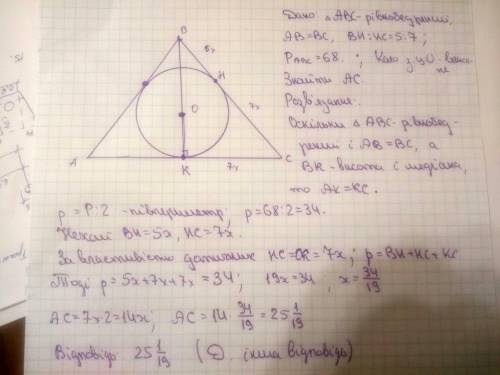 Дано: △ABC - рівнобедрений,
AB=BC, BH:HC=5:7;
P ABC=68. ; Коло з ц.O - впис.
Знайти AC.
Розв'язання.
Оскільки △ABC - рівнобед-
рений і AB=BC, а
BK - висота і медіана,
то AK=KC.
B
5x
H
O
7x
A
K
7x
C
p = P:2 - півпериметр; p=68:2=34.
Нехай BH=5x, HC=7x.
За властивістю дотичних HC=CK=7x; p=BH+HC+KC
Тоді p=5x+7x+7x=34; 19x=34, x=34/19
AC=7x·2=14x; AC=14·34/19=25 1/19
Відповідь: 25 1/19 (Д. інша відповідь)